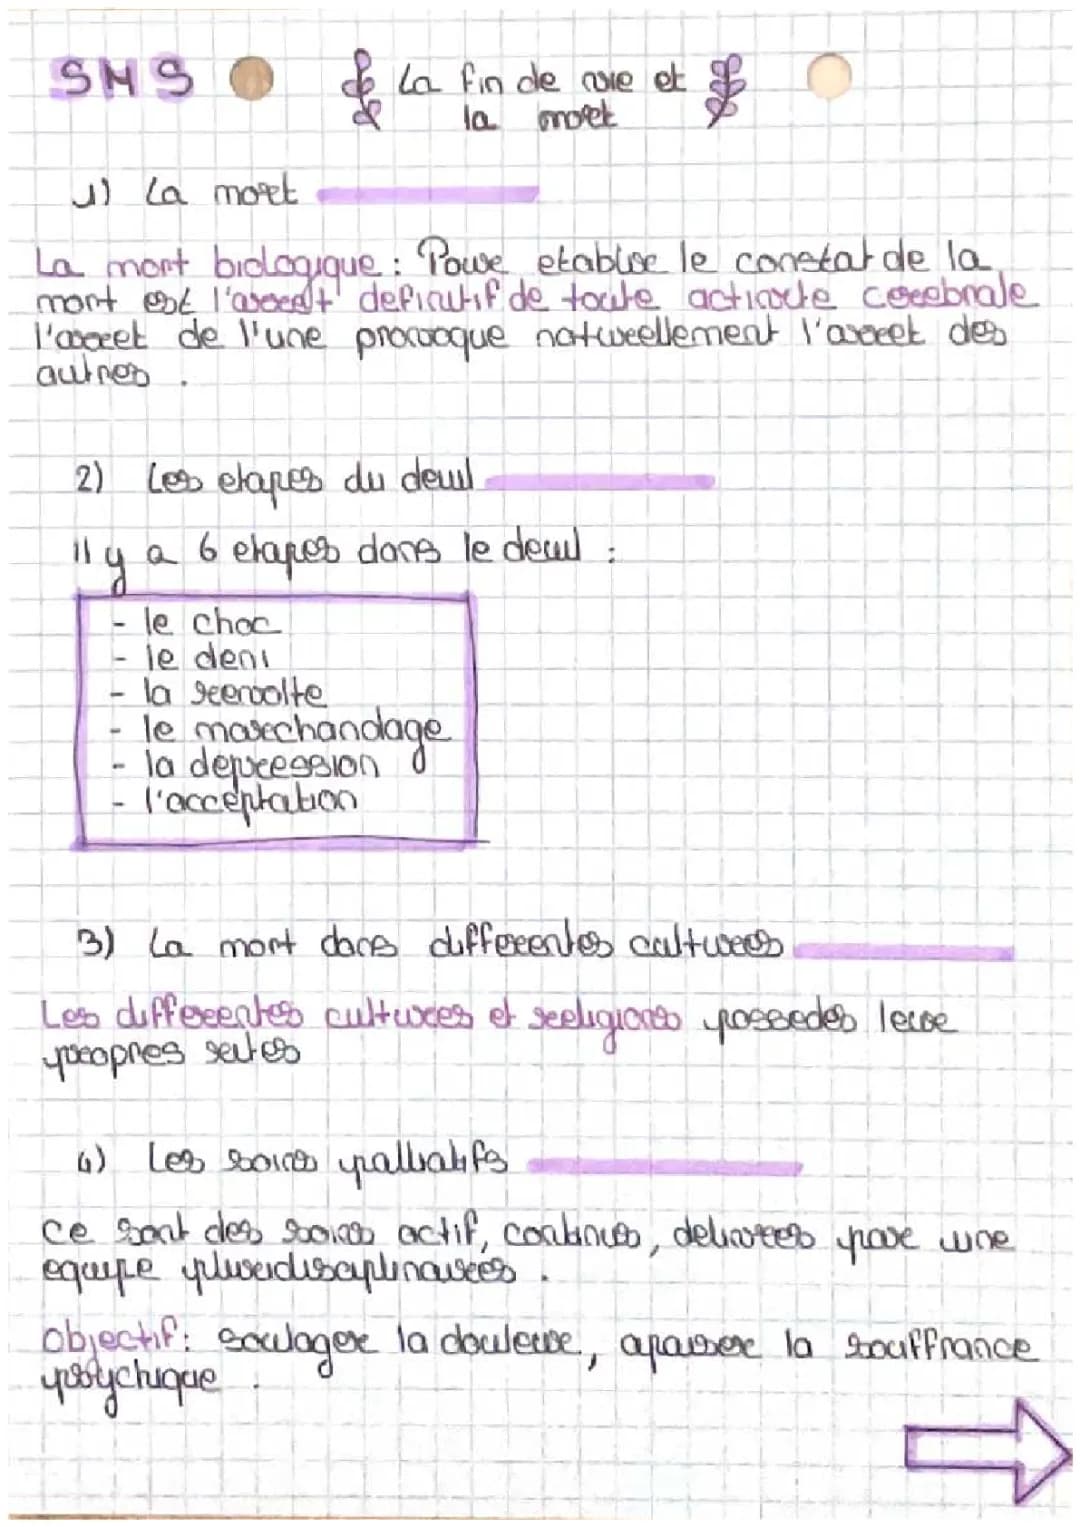 SMS La fin de vie et
la mort
1) La mort
La mort biologique : Pour etablir le constat de la
mort est l'arret definitif de toute activite cerebrale
l'arret de l'une provoque naturellement l'arret des
autres .
2) Les etapes du deuil
il y a 6 etapes dans le deuil :
- le choc
- le deni
- la revolte
- le marchandage
- la depression
- l'acceptation
3) La mort dans differentes cultures
Les differentes cultures et religions possedes leur
propres rites
4) Les soins palliatifs
ce sont des soins actif, continus, delivrees par une
equipe pluridisciplinaires .
Objectif : soulager la douleur, apaiser la souffrance
psychique .